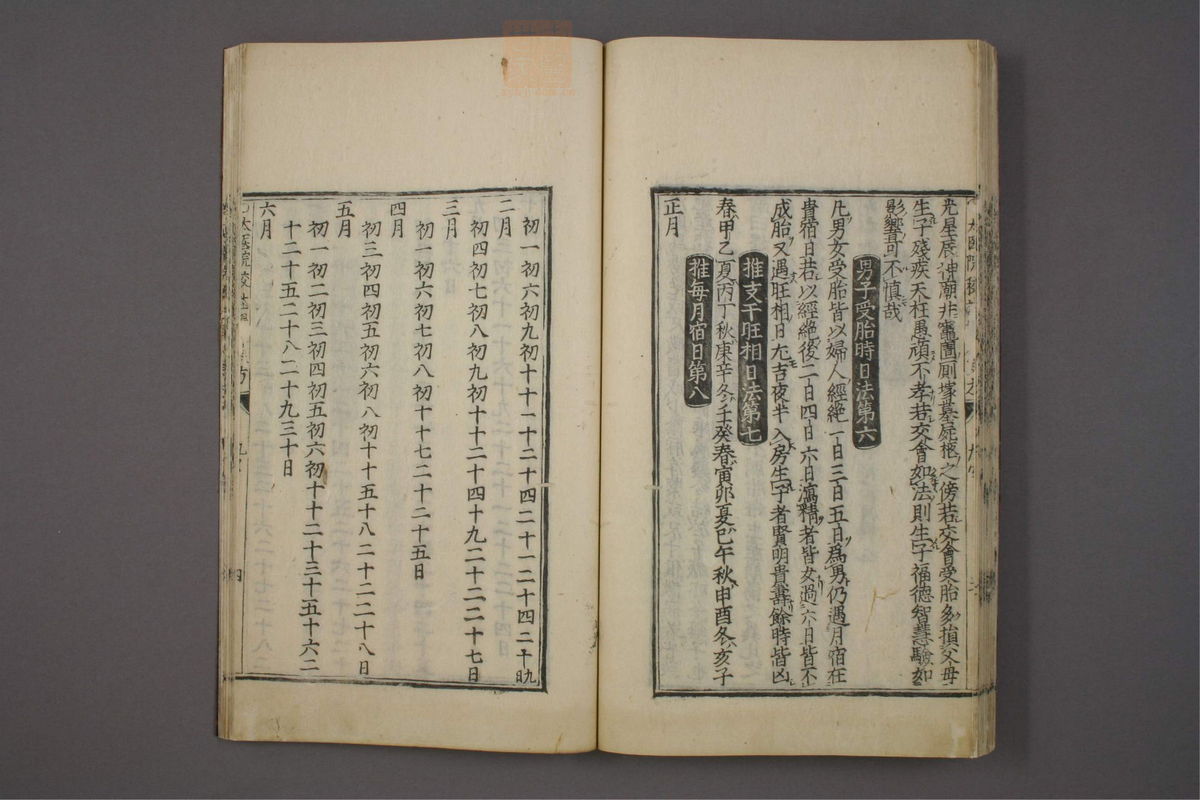 光星辰神廟井竈圊厠塚墓屍柩之傍若交會受胎多損父母
生子殘疾夭枉愚頑不孝若交會如法則生子福德智慧驗如
影響可不慎哉
男子受胎時日法第六
凡男女受胎皆以婦人經絕一日三日五日為男仍遇月宿在
貴宿日若以經絕後二日四日六日瀉精者皆女過六日皆不
成胎又遇旺相日尤吉夜半入房生子者賢明貴壽餘時皆凶
推支干旺相日法第七
春甲乙夏丙丁秋庚辛冬壬癸春寅卯夏巳午秋申酉冬亥子
推每月宿日第八
正月
初一初六初九初十十一十二十四二十一二十四二十九日
二月
初四初七初八初九初十十二十四十九二十二二十七日
三月
初一初六初七初八初十十七二十二十五日
四月
初三初四初五初六初八初十十五十八二十二二十八日
五月
初一初二初三初四初五初六初十十二十三十五十六二
十二十五二十八二十九三十日
六月
太医院校註